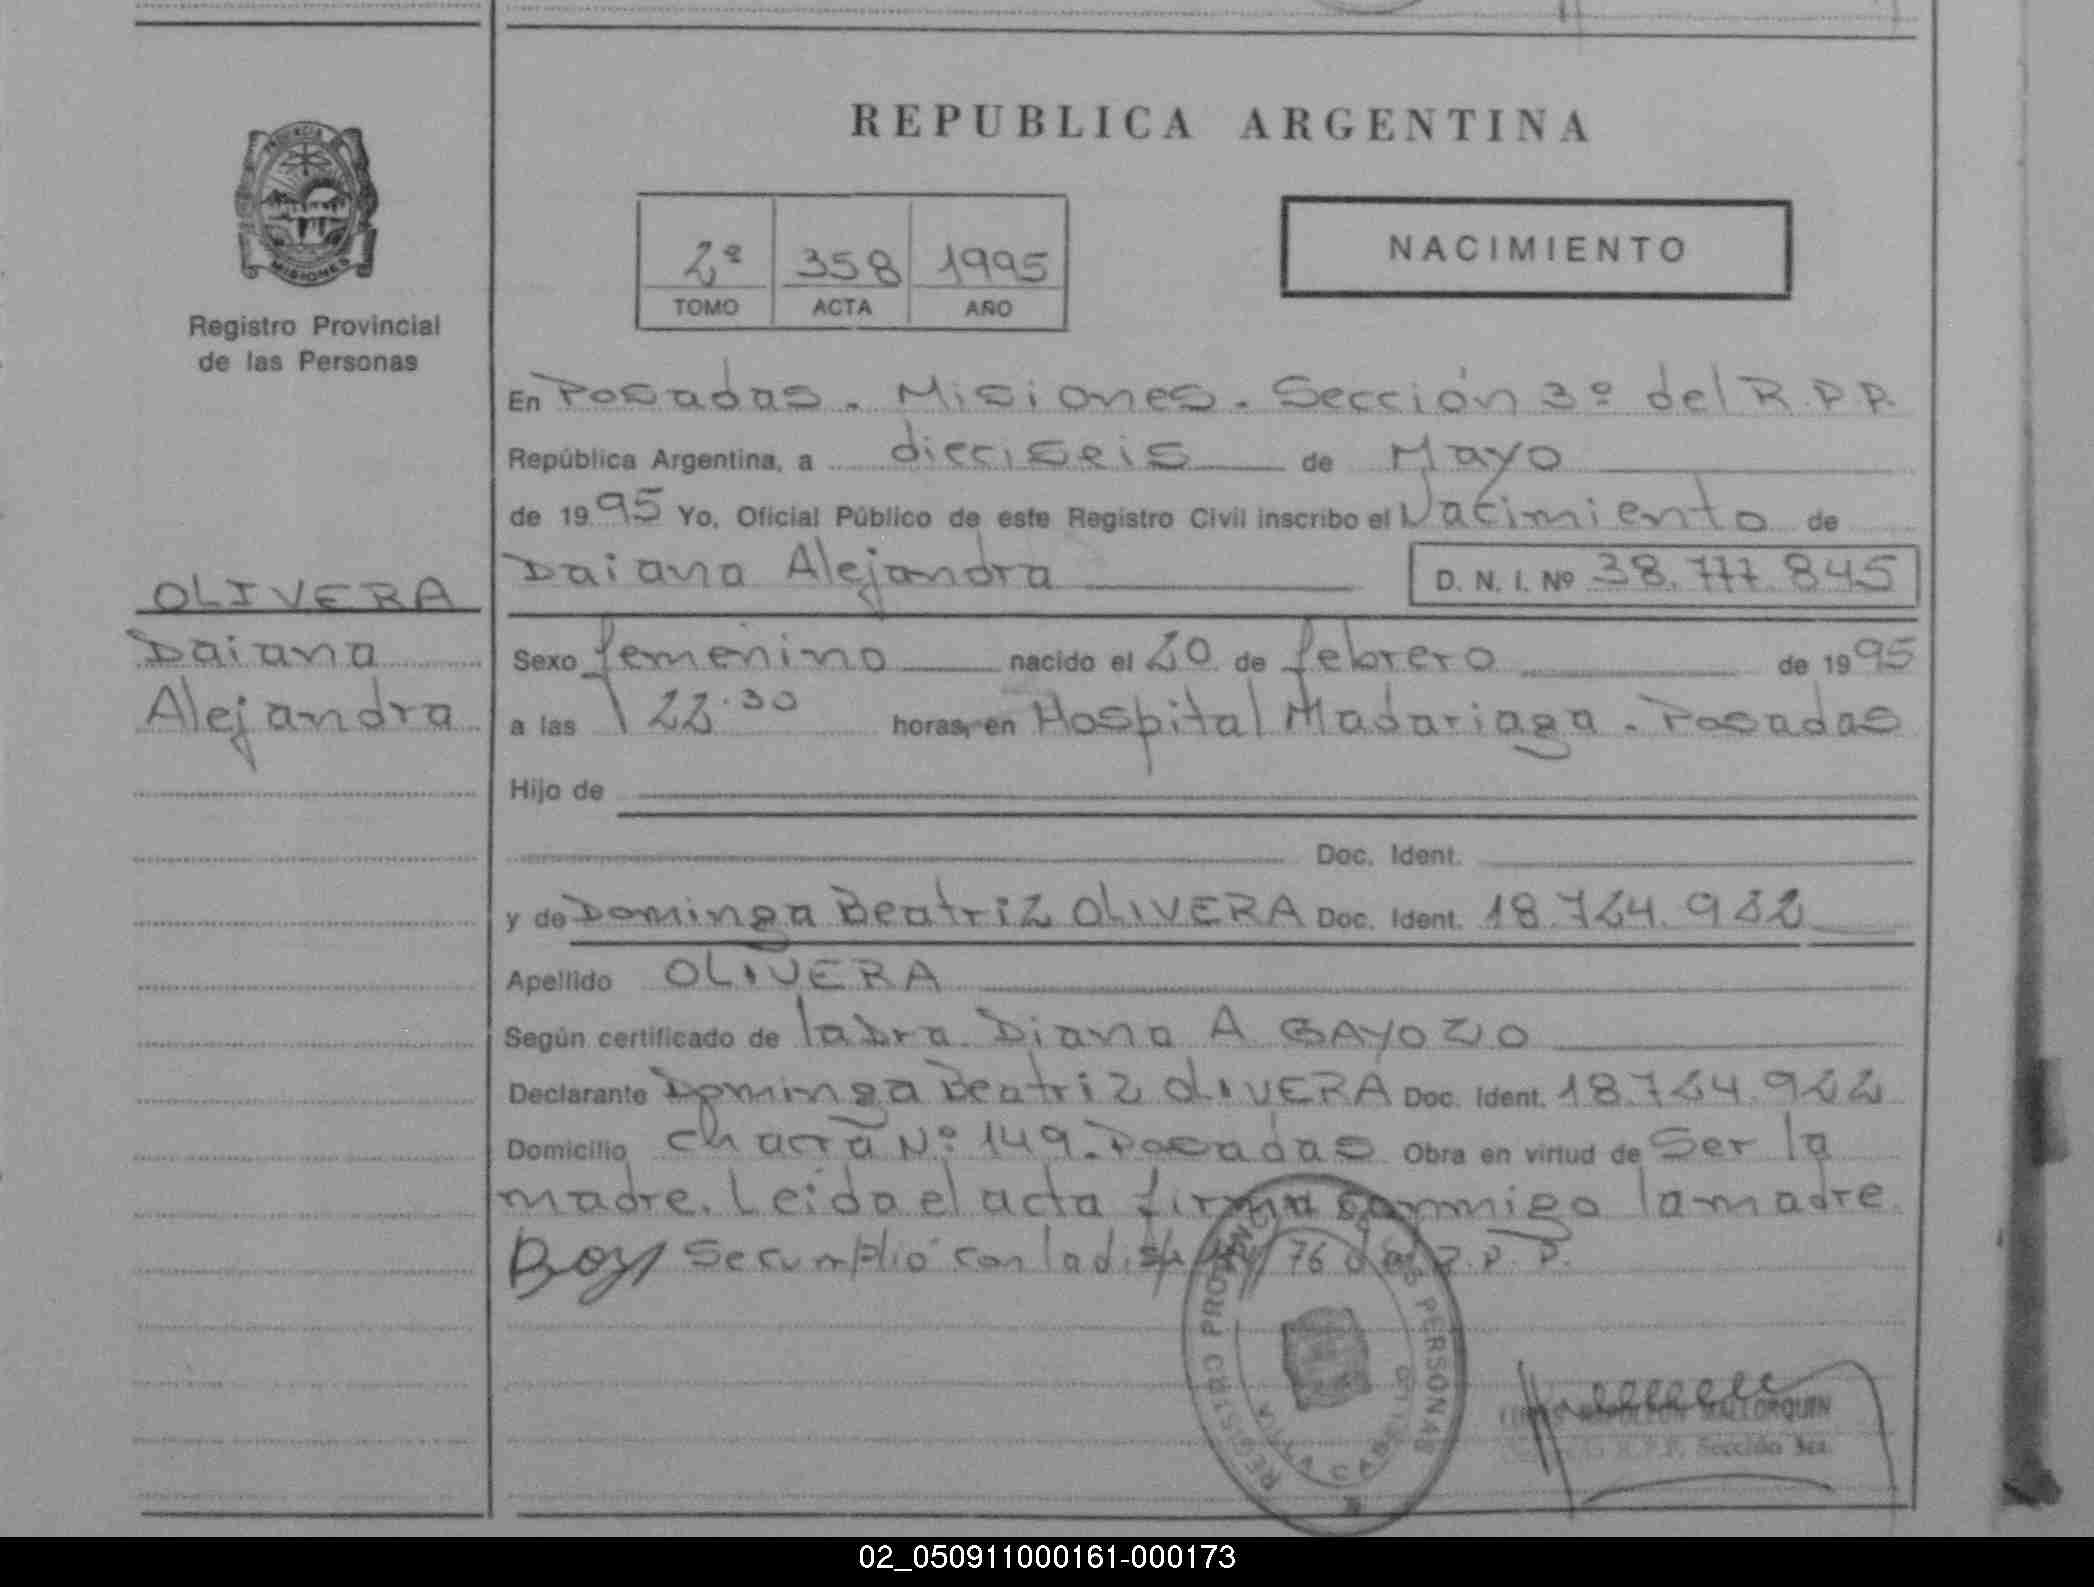 REPUBLICA ARGENTINA
PROVINCIA DE
MISIONES
Registro Provincial
de las Personas
2º 358 1995
TOMO ACTA AÑO
NACIMIENTO
En Posadas. Misiones. Sección 3º del R.P.P.
República Argentina, a dieciseis de Mayo
de 1995 Yo, Oficial Público de este Registro Civil inscribo el Nacimiento de
Daiana Alejandra D. N. I. Nº 38.777.845
OLIVERA
Daiana
Alejandra
Sexo femenino nacido el 20 de febrero de 1995
a las 22.30 horas, en Hospital Madariaga. Posadas
Hijo de
Doc. Ident.
y de Dominga Beatriz OLIVERA Doc. Ident. 18.724.922
Apellido OLIVERA
Según certificado de la Dra. Diana A GAYOZO
Declarante Dominga Beatriz OLIVERA Doc. Ident. 18.724.922
Domicilio Chacra Nº 149. Posadas Obra en virtud de Ser la
madre. Leida el acta firma conmigo la madre.
Se cumplió con la 76 R.P.P.
REGISTRO PROVINCIAL DE LAS PERSONAS
VILLA CABELLO
NAPOLEON MALLORQUIN
R.P.P. Sección 3ra.
02_050911000161-000173